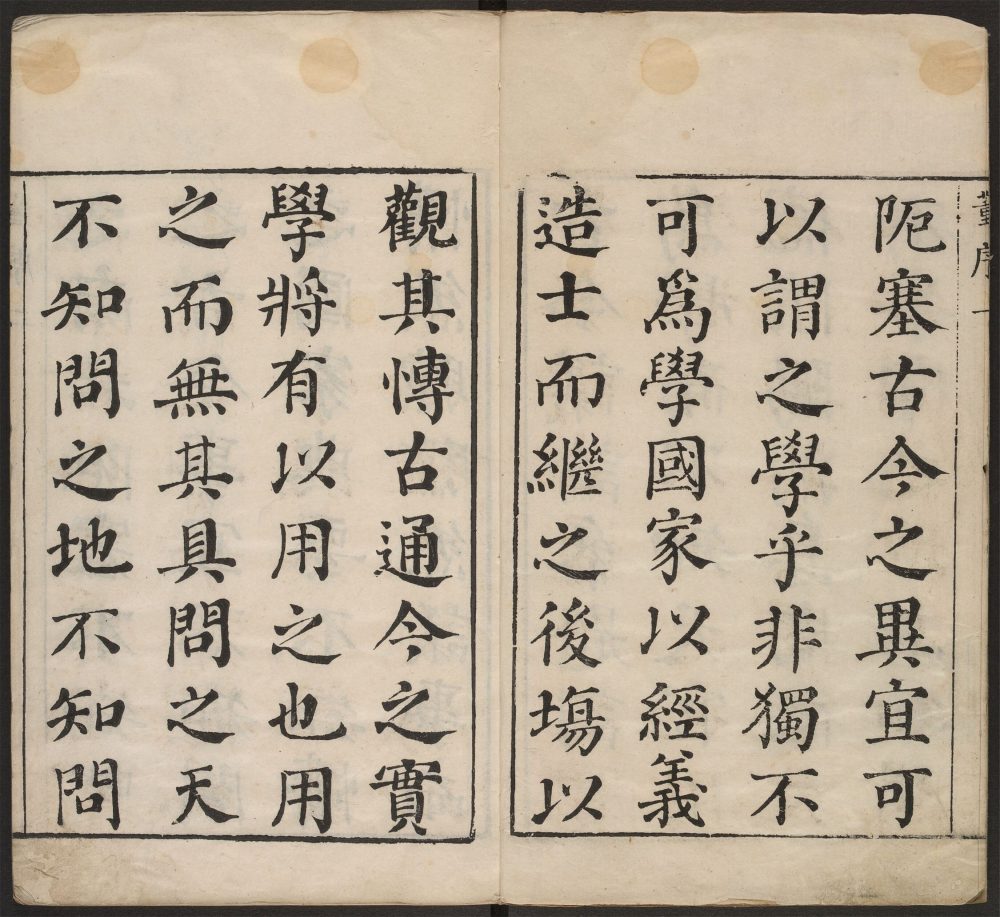 董序一
阨塞古今之異宜可
以謂之學乎非獨不
可爲學國家以經義
造士而繼之後塲以
觀其慱古通今之實
學將有以用之也用
之而無其具問之天
不知問之地不知問